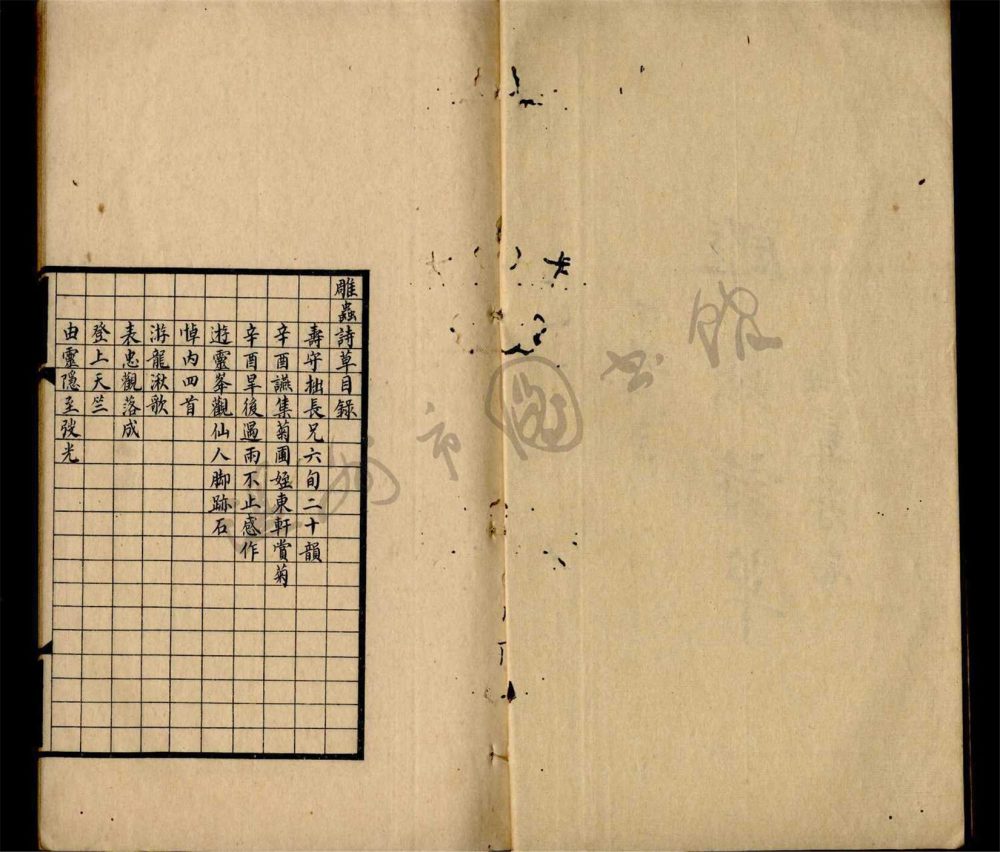 雕蟲詩草目錄
壽守拙長兄六旬二十韻
辛酉讌集菊圃姪東軒賞菊
辛酉旱後過雨不止感作
遊靈峯觀仙人脚跡石
悼內四首
游龍湫歌
表忠觀落成
登上天竺
由靈隱至弢光
市圖书館